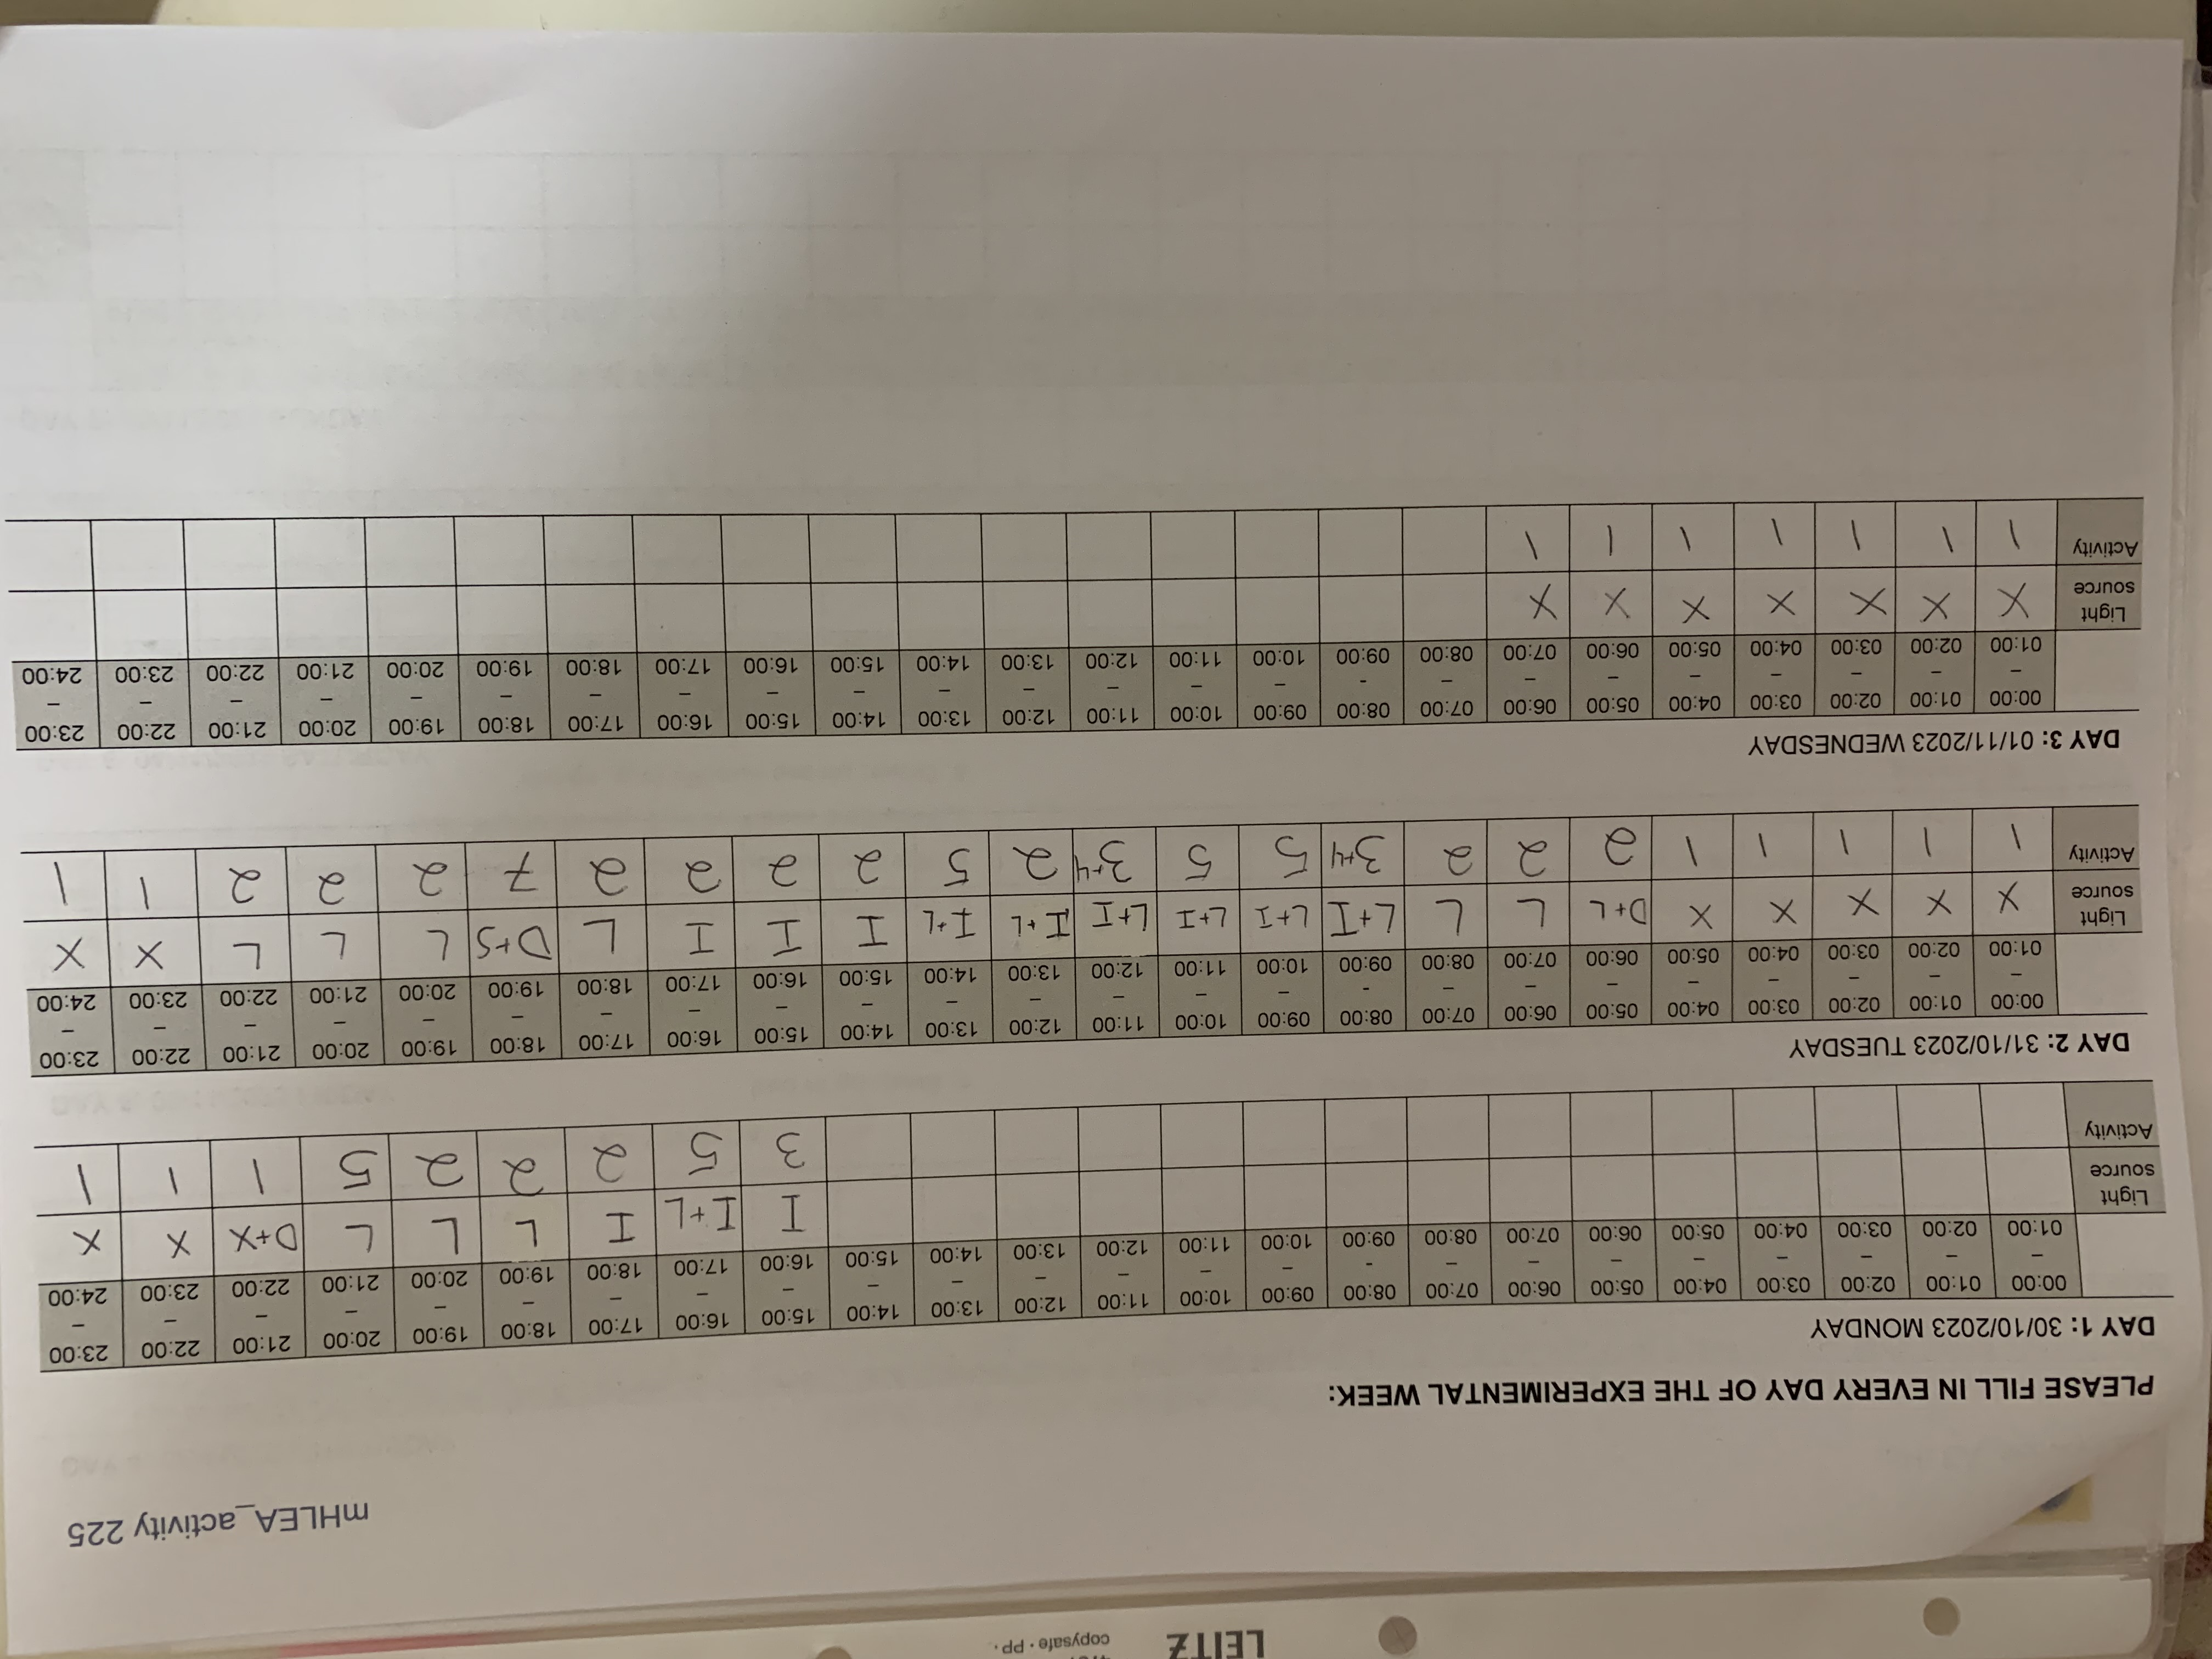 LEITZ
copysafe • PP
mHLEA_activity 225
PLEASE FILL IN EVERY DAY OF THE EXPERIMENTAL WEEK:
DAY 1: 30/10/2023 MONDAY
00:00 – 01:00 01:00 – 02:00 02:00 – 03:00 03:00 – 04:00 04:00 – 05:00 05:00 – 06:00 06:00 – 07:00 07:00 – 08:00 08:00 - 09:00 09:00 – 10:00 10:00 – 11:00 11:00 – 12:00 12:00 – 13:00 13:00 – 14:00 14:00 – 15:00 15:00 – 16:00 16:00 – 17:00 17:00 – 18:00 18:00 – 19:00 19:00 – 20:00 20:00 – 21:00 21:00 – 22:00 22:00 – 23:00 23:00 – 24:00
Light source I I+L I L L L D+X X X
Activity 3 5 2 2 2 5 1 1 1
DAY 2: 31/10/2023 TUESDAY
00:00 – 01:00 01:00 – 02:00 02:00 – 03:00 03:00 – 04:00 04:00 – 05:00 05:00 – 06:00 06:00 – 07:00 07:00 – 08:00 08:00 - 09:00 09:00 – 10:00 10:00 – 11:00 11:00 – 12:00 12:00 – 13:00 13:00 – 14:00 14:00 – 15:00 15:00 – 16:00 16:00 – 17:00 17:00 – 18:00 18:00 – 19:00 19:00 – 20:00 20:00 – 21:00 21:00 – 22:00 22:00 – 23:00 23:00 – 24:00
Light source X X X X X D+L L L L+I L+I L+I L+I I+L I+L I I I L D+S L L L X X
Activity 1 1 1 1 1 2 2 2 3+4 5 5 3+4 2 5 2 2 2 2 7 2 2 2 1 1
DAY 3: 01/11/2023 WEDNESDAY
00:00 – 01:00 01:00 – 02:00 02:00 – 03:00 03:00 – 04:00 04:00 – 05:00 05:00 – 06:00 06:00 – 07:00 07:00 – 08:00 08:00 - 09:00 09:00 – 10:00 10:00 – 11:00 11:00 – 12:00 12:00 – 13:00 13:00 – 14:00 14:00 – 15:00 15:00 – 16:00 16:00 – 17:00 17:00 – 18:00 18:00 – 19:00 19:00 – 20:00 20:00 – 21:00 21:00 – 22:00 22:00 – 23:00 23:00 – 24:00
Light source X X X X X X X
Activity 1 1 1 1 1 1 1